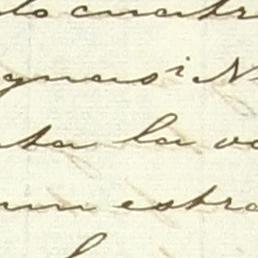 do cuatr
guas i N
ta la vo
un estra